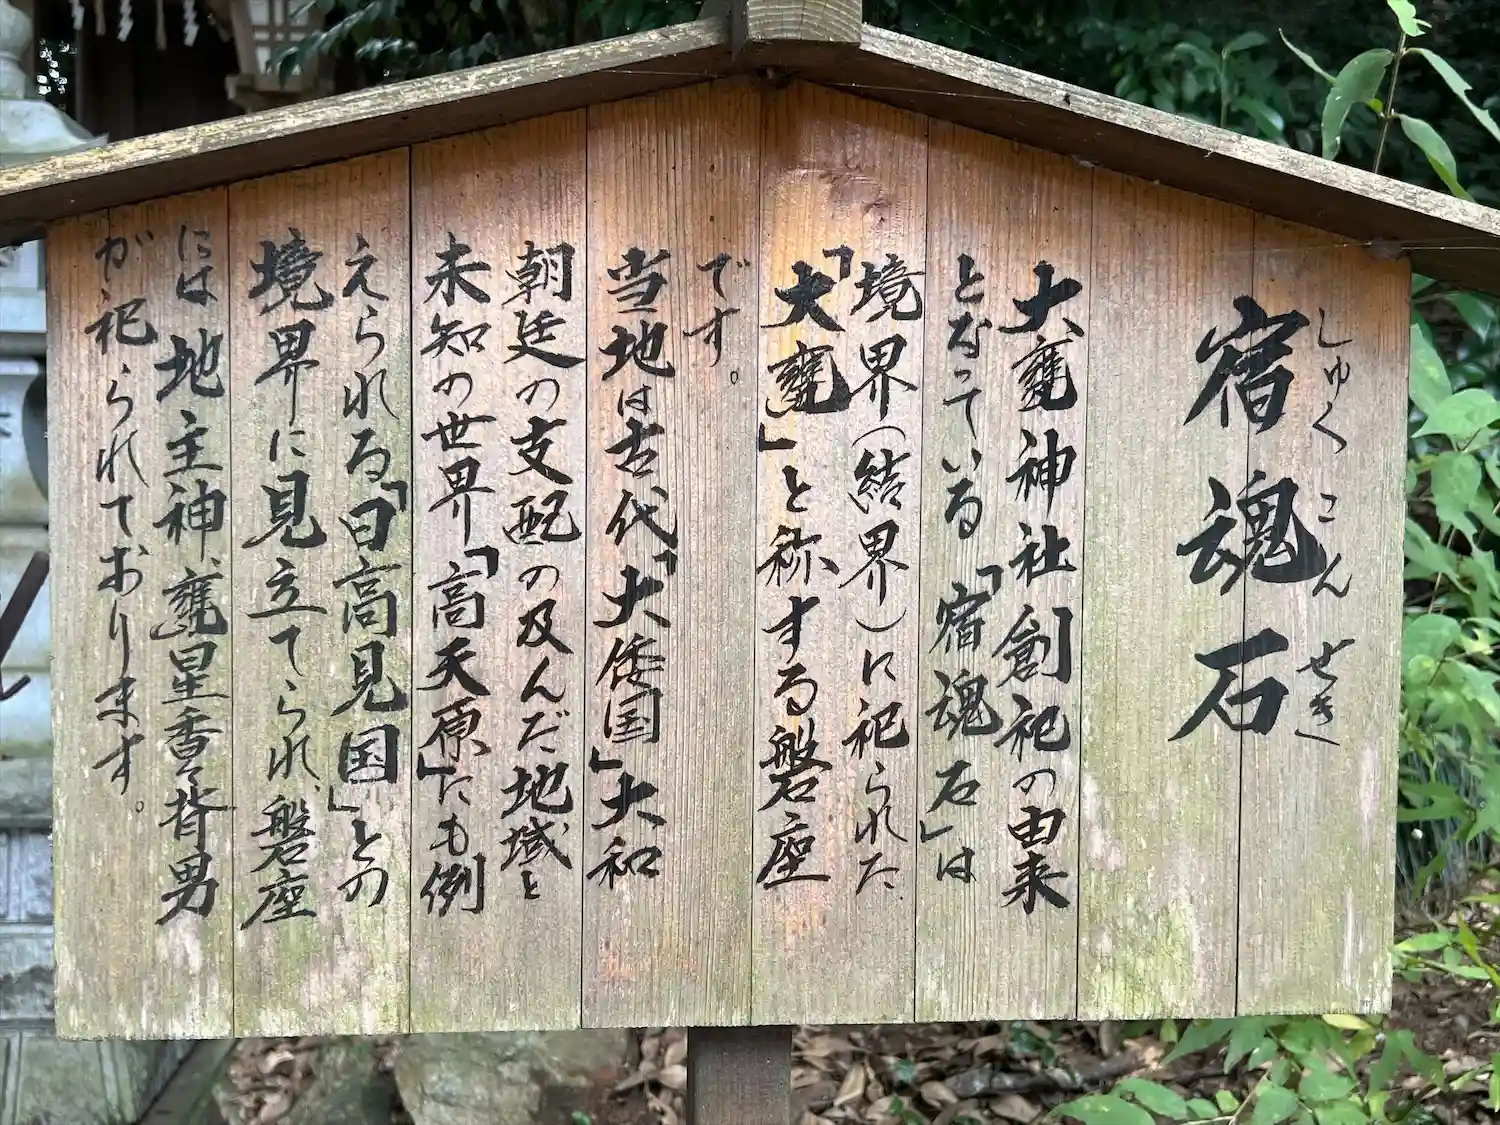 しゅくこんせき
宿魂石
大甕神社創祀の由来
となっている「宿魂石」は
境界（結界）に祀られた
「大甕」と称する磐座
です。
当地は古代「大倭国」大和
朝廷の支配の及んだ地域と
未知の世界「高天原」にも例
えられる「日高見国」との
境界に見立てられ、磐座
には地主神、甕星香々背男
が祀られております。